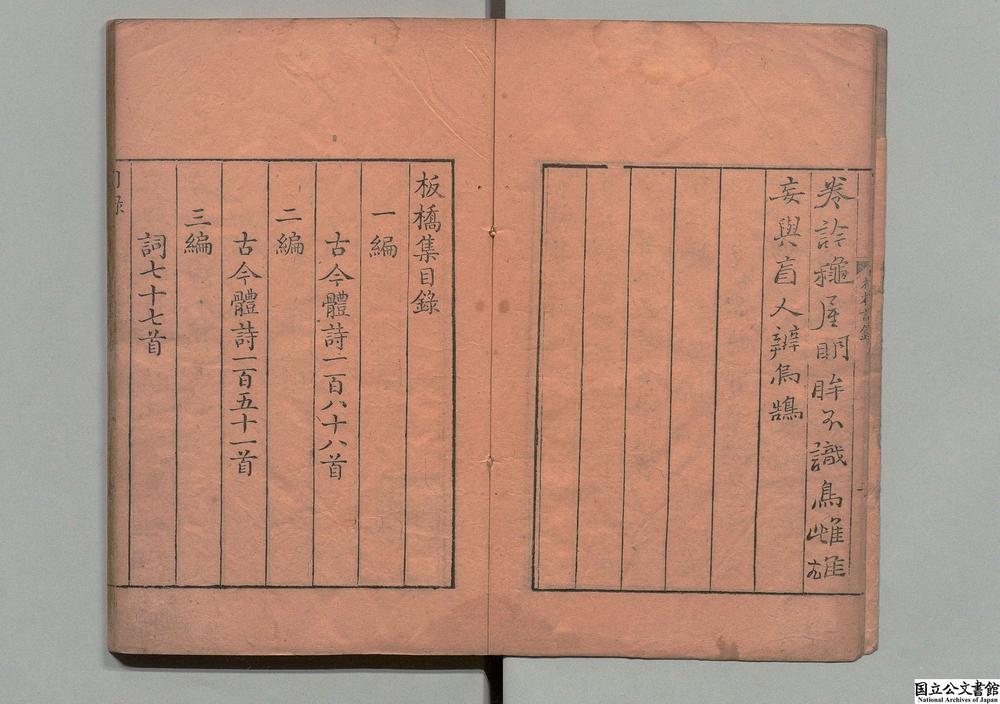 卷
明眸不識鳥雌雄
妄與盲人辨烏鵲
板橋集目錄
一編
古今體詩一百八十八首
二編
古今體詩一百五十一首
三編
詞七十七首
目錄
国立公文書館
National Archives of Japan